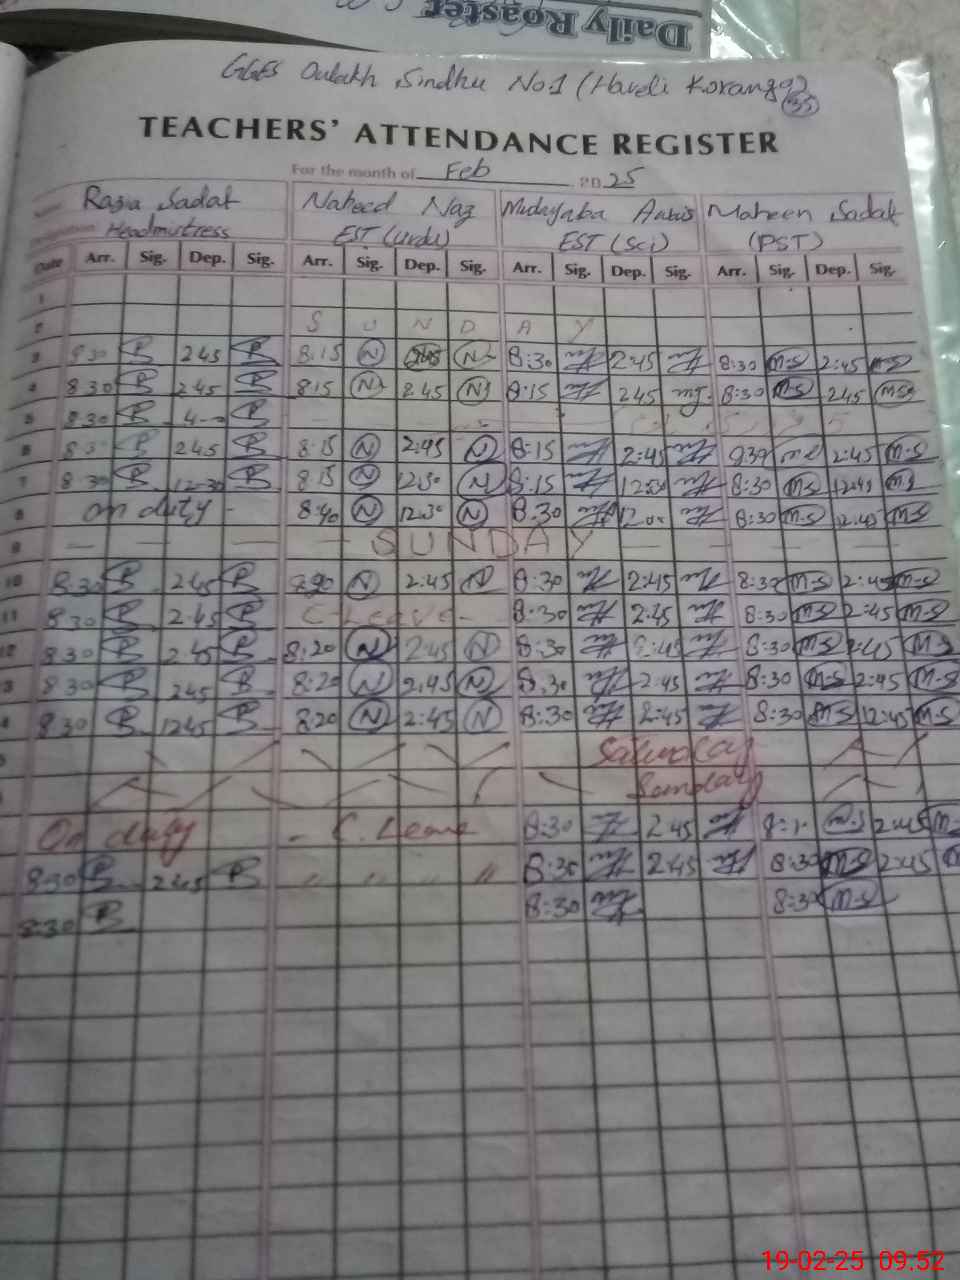 Daily Roaster
GGES Oulakh Sindhu No.1 (Haveli Koranga)
35
TEACHERS' ATTENDANCE REGISTER
For the month of Feb 2025
Name Razia Sadat Naheed Naz Aabis Maheen Sadat
Designation Headmistress EST (Urdu) EST (Sci) (PST)
Date Arr. Sig. Dep. Sig. Arr. Sig. Dep. Sig. Arr. Sig. Dep. Sig. Arr. Sig. Dep. Sig.
1
2 S U N D A Y
3 8 30 B 2 45 B 8:15 N N 8:30 2:45 8:30 M-S 2:45 M-S
4 8 30 B 2 45 B 8:15 N 2.45 N 8:15 2 45 8:30 M-S 2 45 M-S
5 8.30 B 4-0 B
6 8 3 B 2 45 B 8:15 N 2:45 N 8:15 2:45 2:45 M-S
7 8:30 B 12-30 B 8:15 N 12:30 N 8:15 12:30 8:30 M-S M-S
8 on duty - 8:40 N 12:30 N 8:30 12:00 8:30 M-S 12:45 M-S
9 — — — — — S U N D A Y — — — —
10 8:30 B 2 45 B N 2:45 N 8:30 2:45 8:30 M-S 2:45 M-S
11 8 30 B 2.45 B C-Leave- 8:30 2:45 8:30 M-S 2:45 M-S
12 8 30 B 2 45 B 8:20 N 2:45 N 8:30 2:45 8:30 M-S 2:45 M-S
13 8 30 B 2 45 B 8:20 N 2:45 N 8:30 2:45 8:30 M-S 2:45 M-S
14 8 30 B 1245 B 8:20 N 2:45 N 8:30 2:45 8:30 M-S 12:45 M-S
Saturday
Sunday
On duty - C. Leave 8:30 2:45 M-S 2:45 M-S
8:30 B 2 45 B " " " " 8:30 2:45 8:30 M-S 2:45 M
8:30 B 8:30 8:30 M-S
19-02-25 09:52